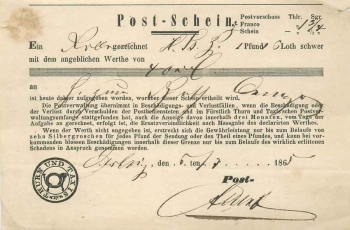 Post-Schein.
Postvorschuss Thlr. Sgr.
Franco
Schein
Ein gezeichnet H. B. 1 Pfund Loth schwer
mit dem angeblichen Werthe von
an
ist heute daher aufgegeben worden, worüber dieser Schein ertheilt wird.
Die Postverwaltung übernimmt in Beschädigungs- und Verlustfällen, wenn die Beschädigung oder
der Verlust durch Verschulden der Postbediensteten und im Fürstlich Thurn und Taxis'schen Postver-
waltungsumfang stattgefunden hat, auch die Anzeige davon innerhalb drei Monaten, vom Tage der
Aufgabe an gerechnet, erfolgt ist, die Ersatzverbindlichkeit nach Maassgabe des declarirten Werthes.
Wenn der Werth nicht angegeben ist, erstreckt sich die Gewährleistung nur bis zum Belaufe von
zehn Silbergroschen für jedes Pfund der Sendung oder den Theil eines Pfundes, und kann bei vor-
kommenden blossen Beschädigungen innerhalb dieser Grenze nur bis zum Belaufe des wirklich erlittenen
Schadens in Anspruch genommen werden.
den 5 1865
Post-
THURN UND TAXIS